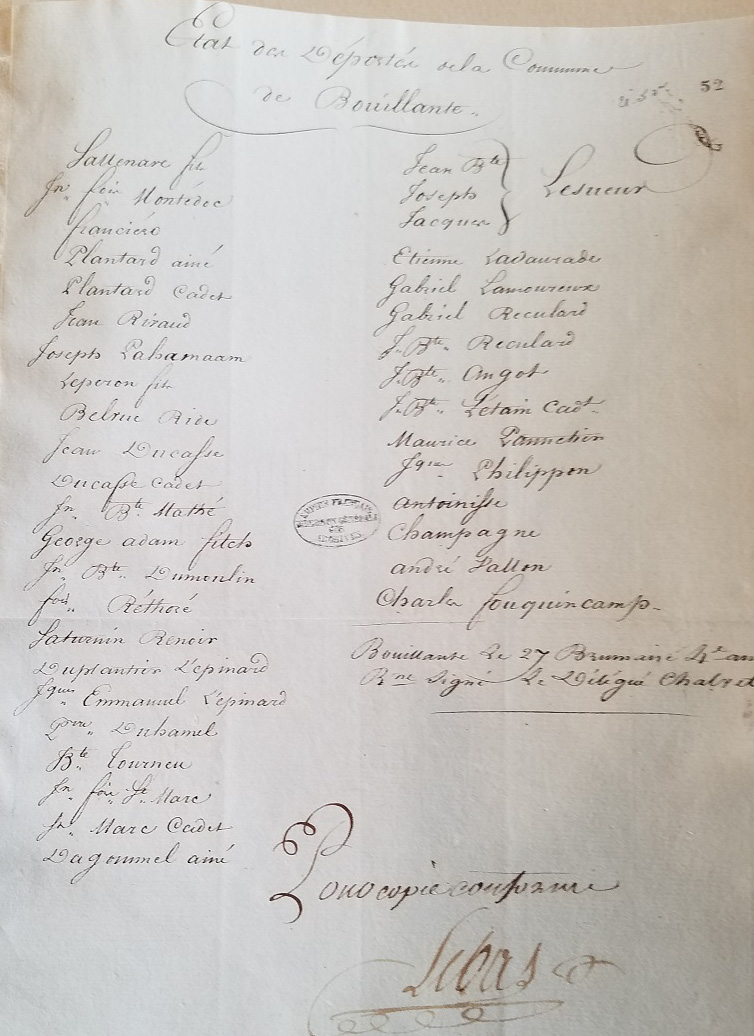 Etat des Déportés de la Commune
de Bouillante.
52
Sallenare fils
Jn. fois Montédoc
francséro
Plantard ainé
Plantard Cadet
Jean Riraud
Joseph Lahamaam
Leperon fils
Belrue Ride
Jean Ducasse
Ducasse Cadet
Jn. Bte. Mathé
George adam fitch
Jn. Bte. Dumoulin
fois. Réthoré
Saturnin Renoir
Duplantier L'épinard
Jques. Emmanuel L'épinard
Pre. Duhamel
Bte. Tourneu
Jn. fois St. Marc
Jn. Marc Cadet
Dagoumel ainé
Jean Bte
Joseph
Jacques
Lesueur
Etienne Lavaurade
Gabriel Lamoureux
Gabriel Reculard
J. Bte. Reculard
J. Bte. Angot
J. Bte. Létain Cadt.
Maurice Pannetier
Jques. Philippon
antoinisse
Champagne
andré Fallon
Charles fouquincamp
Bouillante Le 27 Brumaire 4e. an
Rne Signé Le Délégué Chabret
Pour copie conforme
Lebas